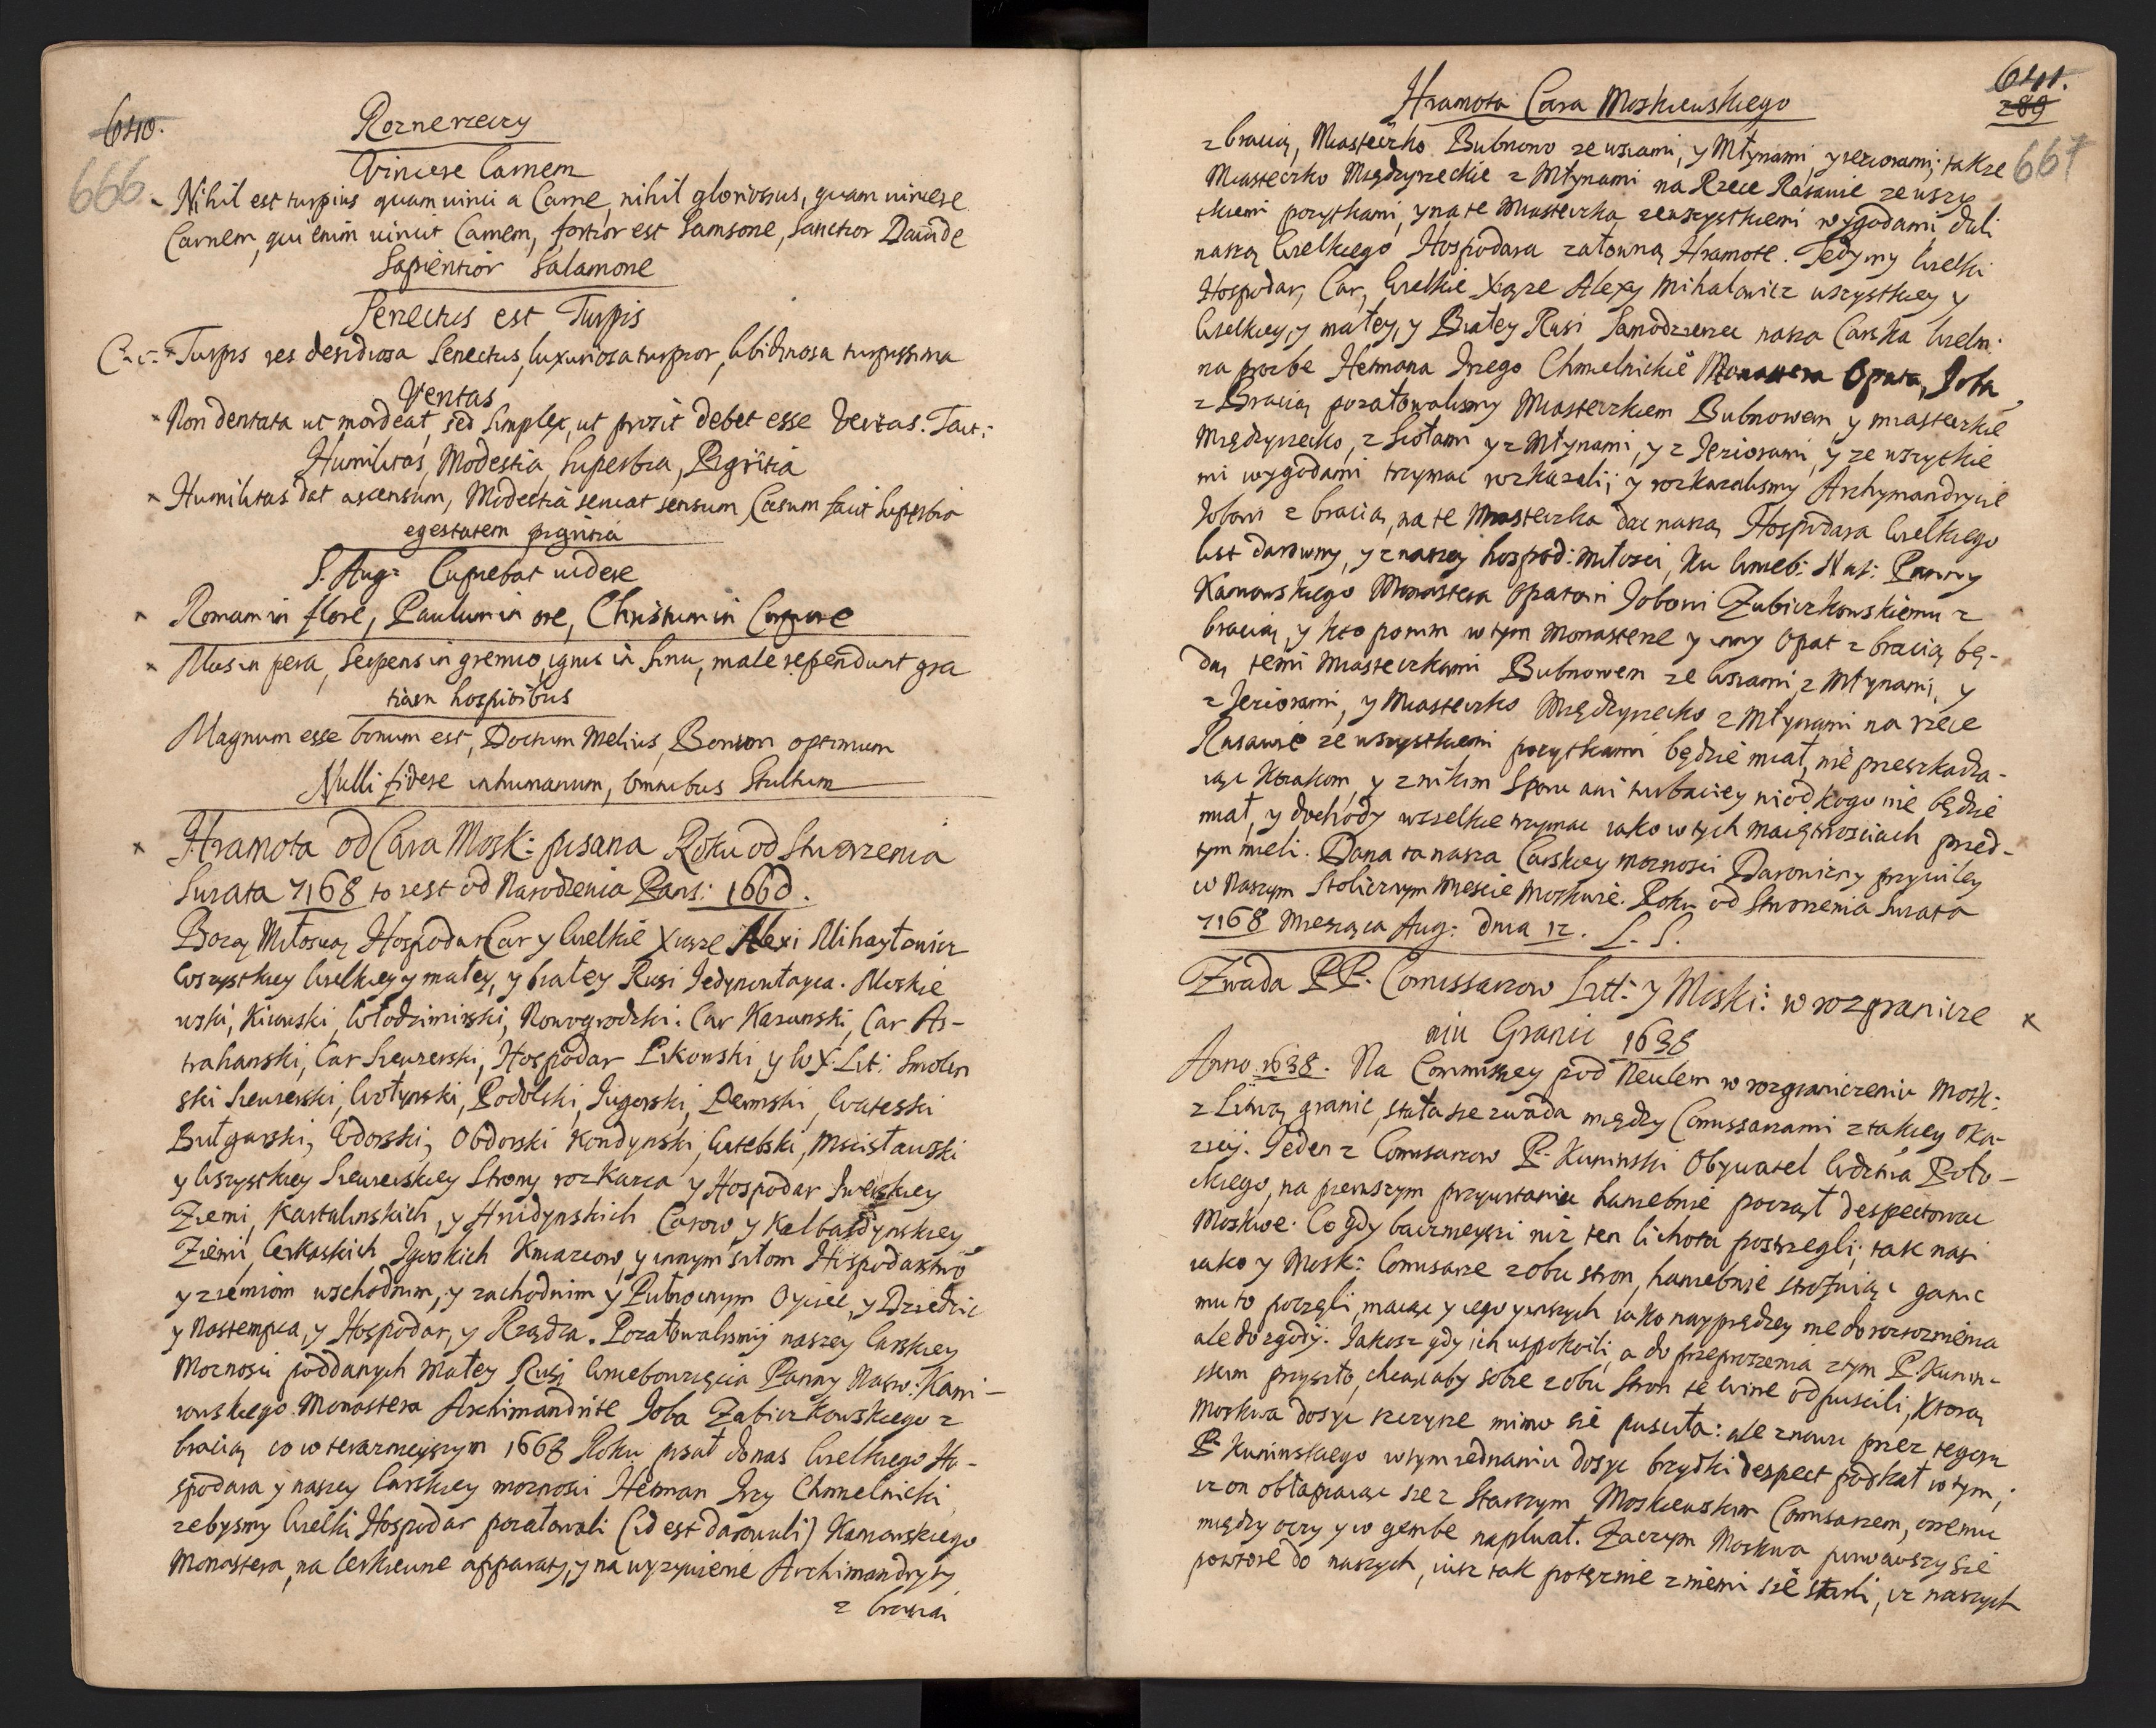 640.
666
Roznerzeczy
Vincere Carnem
Nihil est turpius quam uinci a Carne, nihil gloriosius, quam uincere
Carnem, qui enim uincit Carnem, fortior est Samsone, Sanctior Dauide
Sapientior Salamone
Senectus est Turpis
Cic: Turpis res desidiosa Senectus, luxuriosa turpior, libidinosa turpissima
Veritas
Non dentata ut mordeat, sed simplex, ut prosit debet esse Veritas. Tacit:
Humilitas, Modestia, Superbia, Pigritia
Humilitas dat ascensum, Modestia seruat sensum Casum facit Superbia
egestatem pigritia
S. Aug: Cupiebat uidere
Romam in flore, Paulum in ore, Christum in Corpore
Mus in pera, Serpens in gremio, ignis in Sinu, male rependunt gra
tiam hospitibus
Magnum esse bonum est, Doctum Melius, Bonum optimum
Nulli fidere inhumanum, Omnibus Stultum
Hramota od Cara Mosk: pisana Roku od Stworzenia
Swiata 7168 to iest od Narodzenia Pans: 1660.
Bożą Miłością Hospodar Car y Wielkie Xiąże Alexi Mihayłowicz
Wszystkiey Wielkiey y małey, y białey Rusi Jedynowłayca. Moskie
wski, Kiowski, Włodzimirski, Nowogrodzki: Car Kazanski, Car As-
trahanski, Car Siewierski, Hospodar Pskowski, y W. X. Lit: Smolen
ski Siewierski, Wołynski, Podolski, Jugorski, Permski, Wiateski
Bułgarski, Udorski, Obdorski Kondynski, Witebski, Mscisławski
y Wszystkiey Siewierskiey Strony rozkazca y Hospodar Iwerskiey
Ziemi, Kartalinskich, y Hrudynskich Carow, y Kalbardynskiey
Ziemi, Cerkaskich Igorskich Kniaziow, y innym siłom Hospodarstwo
y ziemiom wschodnim, y zachodnim y Pułnocnym Oyciec, y Dziedzic
y Nastempca, y Hospodar, y Rządca. Pozałowalismy naszey Carskiey
Moznosci poddanych Małey Rusi Wniebowzięcia Panny Nasw: Kani-
owskiego Monastera Archimandrite Joba Zabiczkowskiego z
bracią co w terazneyszym 1668 Roku pisał donas Wielkiego Ho-
spodara y naszey Carskiey moznosci Hetman Jrzy Chmielnicki
zebysmy Wielki Hospodar pozałowali (id est darowali) Kaniowskiego
Monastera, na Cerkiewne apparaty, y na wyzywienie Archimandryty
z bracią
641.
289
667
Hramota Cara Moskiewskiego
z bracią, Miasteczko Bubnowo ze wsiami, y Młynami, y ieziorami; takze
Miasteczko Międzyrzeckie z Młynami na Rzece Rasawie ze wszy
tkiemi pozytkami, y na te Miasteczka ze wszystkiemi wygodami dali
naszą Wielkiego Hospodara załowną Hramote. Tedy my Wielki
Hospodar, Car, Wielkie Xiąże Alexy Mihalowicz wszystkiey y
Wielkiey, y małey, y Białey Rusi Samodzierzec nasza Carska Wielm:
na prozbe Hetmana Jrzego Chmielnickie Monastera Opata, Joba
z Bracią pozałowalismy Miasteczkiem Bubnowem y miasteczkie
Międzyrzecko, z Siołami y z Młynami, y z Jeziorami, y ze wszytkie
mi wygodami trzymac rozkazali; y rozkazalismy Archymandrycie
Jobowi z bracią, na te Miasteczka dac naszą Hospodara Wielkiego
list darowny, y z naszey hospod: miłosci, Ku Wnieb: Naś: Panny
Kaniowskiego Monastera Opatowi Jobowi Zubiczkowskiemu z
bracią, y kto potim w tym Monasterze y inny Opat z bracią bę-
dą temi Miasteczkami Bubnowem ze Wsiami, z Młynami, y
z Jeziorami, y Miasteczko Międzyrzecko z Młynami na rzece
Rasawie ze wszystkiemi pozytkami będzie miał, nie przeszkadza-
iąc Kozakom, y z nikim Sporu ani turbaciey ni od kogo nie będzie
miał, y dochody wszelkie trzymac iako w tych maiętnosciach przed-
tym mieli. Dana ta nasza Carskiey moznosci Darowizny przywiley
w Naszym Stołecznym Miescie Moskwie. Roku od Stworzenia Swiata
7168 Miesiąca Aug: dnia 12. L. S.
Zwada PP. Comissarzow Litt: y Moski: w rozgranicze
niu Granic 1638
Anno 1638. Na Commissiey pod Neulem w rozgraniczeniu Mosk:
z Litwą granic, stała sie zwada między Comissarzami z takiey oka-
zij. Jeden z Comisarzow P. Kuninski Obywatel Wdztwa Poło-
ckiego, na pierwszym przywitaniu haniebnie począł despectowac
Moskwe. Co gdy bacznieyszi niz ten lichota postrzegli; tak nasi
iako y Mosk: Comisarze z obu stron, haniebnie strofuiąc ganic
mu to poczęli, maiąc y iego y inszych iako nayprędzey nie do rozroznienia
ale do zgody. Jakosz gdy ich uspokoili, a do przeproszenia z tym P. Kunin-
skim przyszło, chcąc aby sobie z obu stron te wine odpuscili, Ktorą
Moskwa dosyc szczyrze mimo się puscuła: ale znowu przez tegosz
P. Kuninskiego w tym iednaniu dosyc brzydki despect podkał w tym;
iz on obłapiaiąc sie z Starszym Moskiewskim Comisarzem, onemu
między oczy y w gembe napluał. Zaczym Moskwa porwawszy sie
powtore do naszych, iusz tak potęznie z niemi się starli, iz naszych